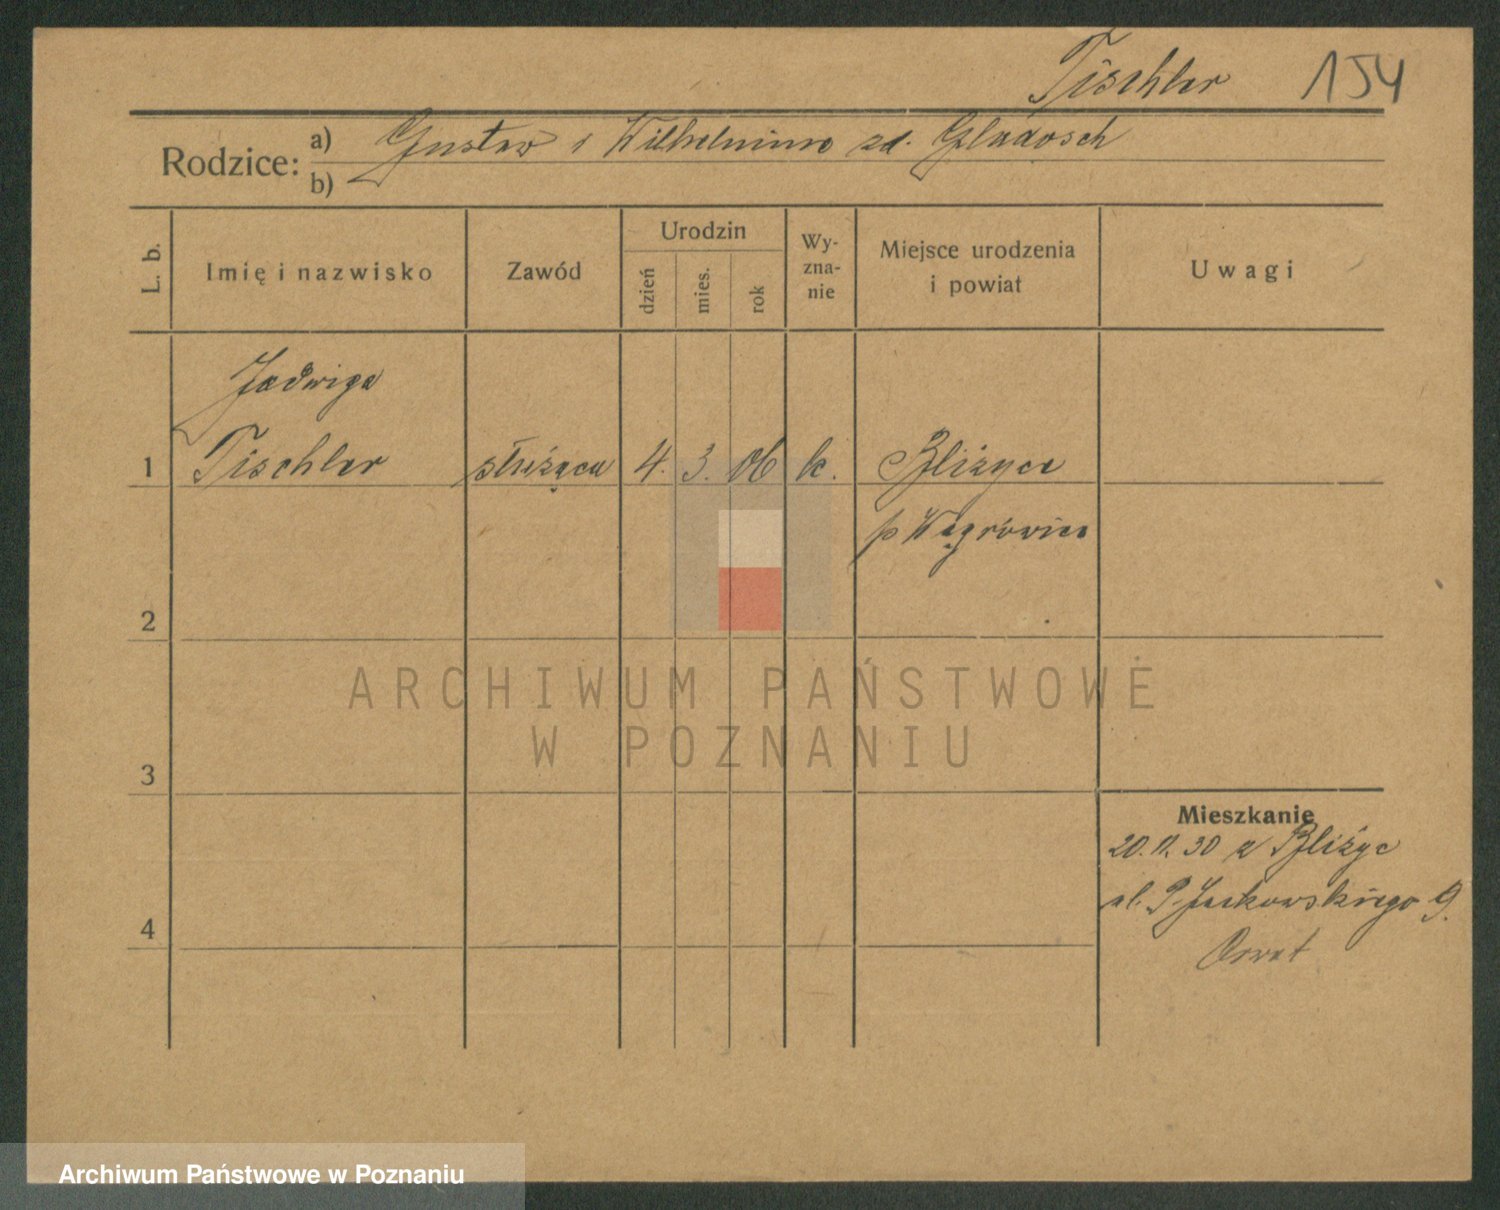 Tischler 154
Rodzice: a) Gustaw i Wilhelmine zd. Gladosch
b)
L. b. Imię i nazwisko Zawód Urodzin dzień mies. rok Wy-zna-nie Miejsce urodzenia i powiat Uwagi
Jadwiga
1 Tischler służąca 4. 3. 06 k. Bliżyce
p Wągrówiec
2
ARCHIWUM PAŃSTWOWE
W POZNANIU
3
Mieszkanie
20.11.30 z Bliżyc
ul. P. Jackowskiego 9.
4
Archiwum Państwowe w Poznaniu